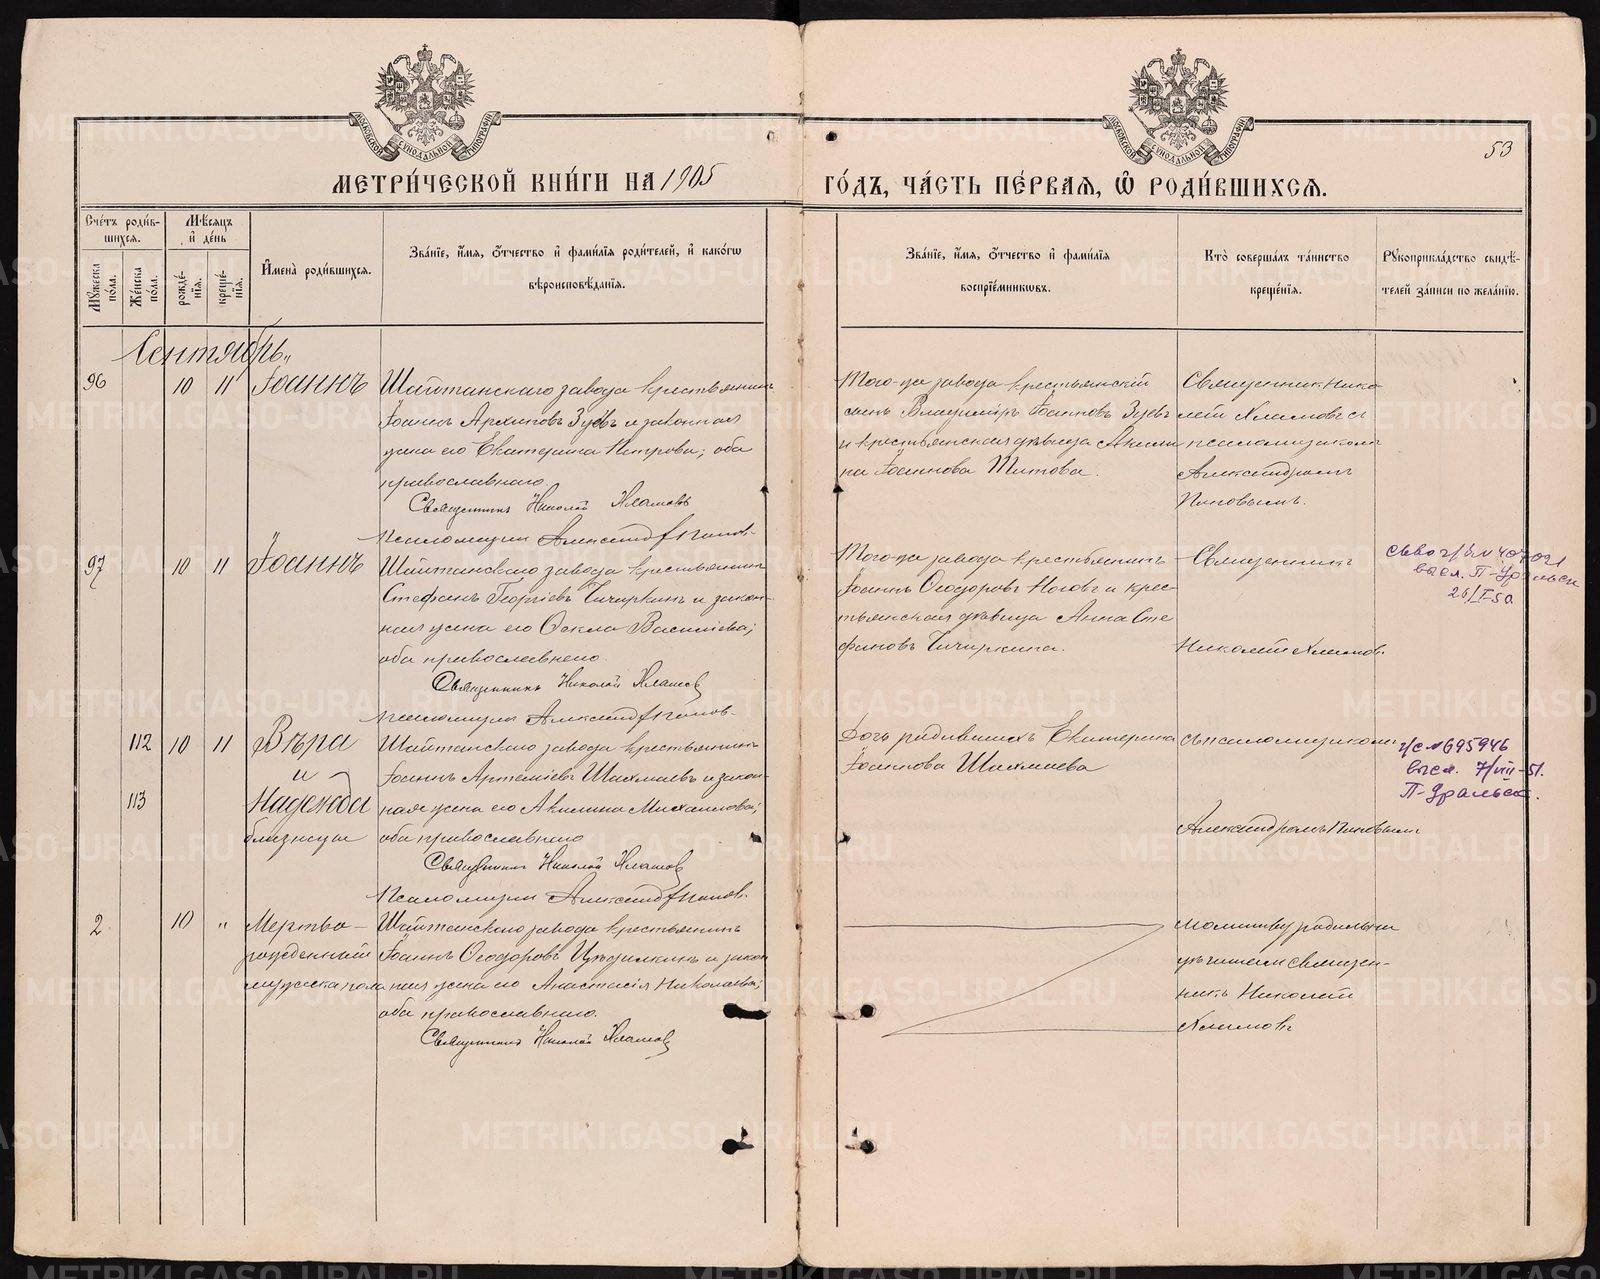 МЕТРИ́ЧЕСКОЙ КНИ́ГИ НА 1905
ГО́ДЪ, ЧА́СТЬ ПЕ́РВАѦ, Ѽ РОДИ́ВШИХСѦ.
53
МОСКОВСКОЙ СѴНОДАЛЬНОЙ ТИПОГРАФІИ
МОСКОВСКОЙ СѴНОДАЛЬНОЙ ТИПОГРАФІИ
Сче́тъ роди́в-
шихсѧ.
Мꙋжеска по́ла.
Же́нска по́ла.
Мѣ́сѧцъ
и҆ де́нь
рожде́-
нїѧ.
креще́-
нїѧ.
И҆мена̀ роди́вшихсѧ.
Зва́нїе, и҆́мѧ, ѻ҆́тчество и҆ фами́лїѧ роди́телей, и҆ како́гѡ
вѣроисповѣ́данїѧ.
Зва́нїе, и҆́мѧ, ѻ҆́тчество и҆ фами́лїѧ
воспрїе́мникѡвъ.
Кто̀ соверша́лъ та́инство
креще́нїѧ.
Рꙋкоприкла́дство свидѣ́-
телей за́писи по жела́нїю.
Сентябрь
96 10 11 Іоаннъ
Шайтанскаго завода крестьянинъ
Іоаннъ Архиповъ Зуевъ и законная
жена его Екатерина Петрова; оба
православнаго.
Священникъ Николай Хламовъ
Псаломщикъ Александръ Поповъ.
Того-же завода крестьянскій
сынъ Владиміръ Іоанновъ Зуевъ
и крестьянская дѣвица Акили
на Іоаннова Титова.
Священникъ Нико
лай Хламовъ съ
псаломщикомъ
Александромъ
Поповымъ.
97 10 11 Іоаннъ
Шайтанскаго завода крестьянинъ
Стефанъ Георгіевъ Чичиркинъ и закон-
ная жена его Ѳекла Васильева;
оба православнаго.
Священникъ Николай Хламовъ
Псаломщикъ Александръ Поповъ.
Того-же завода крестьянинъ
Іоаннъ Ѳеодоровъ Ноговъ и крес-
тьянская дѣвица Анна Сте
фановъ Чичиркина.
Священникъ
Николай Хламовъ
высл. П-Уральск
26/I 50
112 10 11 Вѣра
и
113 Надежда
близнецы
Шайтанскаго завода крестьянинъ
Іоаннъ Артеміевъ Шахмаевъ и закон-
ная жена его Акилина Михаилова;
оба православнаго
Священникъ Николай Хламовъ
Псаломщикъ Александръ Поповъ.
Дочь родившихъ Екатерина
Іоаннова Шахмаева
съ псаломщикомъ
Александромъ Поповымъ
г/с № 695946
высл. 7/VIII-51.
П-Уральск.
2 10 „ Мертво-
рожденный
мужска пола
Шайтанскаго завода крестьянинъ
Іоаннъ Ѳеодоровъ и закон
ная жена его Анастасія Николаева;
оба православнаго.
Священникъ Николай Хламовъ
Молитву родильни
цѣ читалъ священ-
никъ Николай
Хламовъ
METRIKI.GASO-URAL.RU